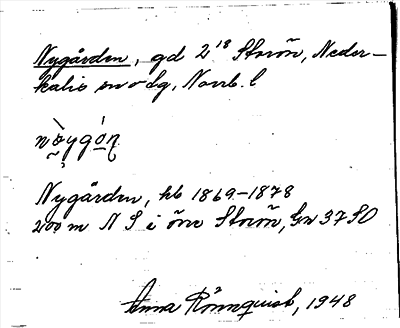 Nygården, gd 2¹⁸ Storön, Neder-
kalix sn o tg, Norrb. l
Nygården, hb 1869-1878
200 m N S i öns Storön, Gn 37 SO
Anna Rönnquist, 1948